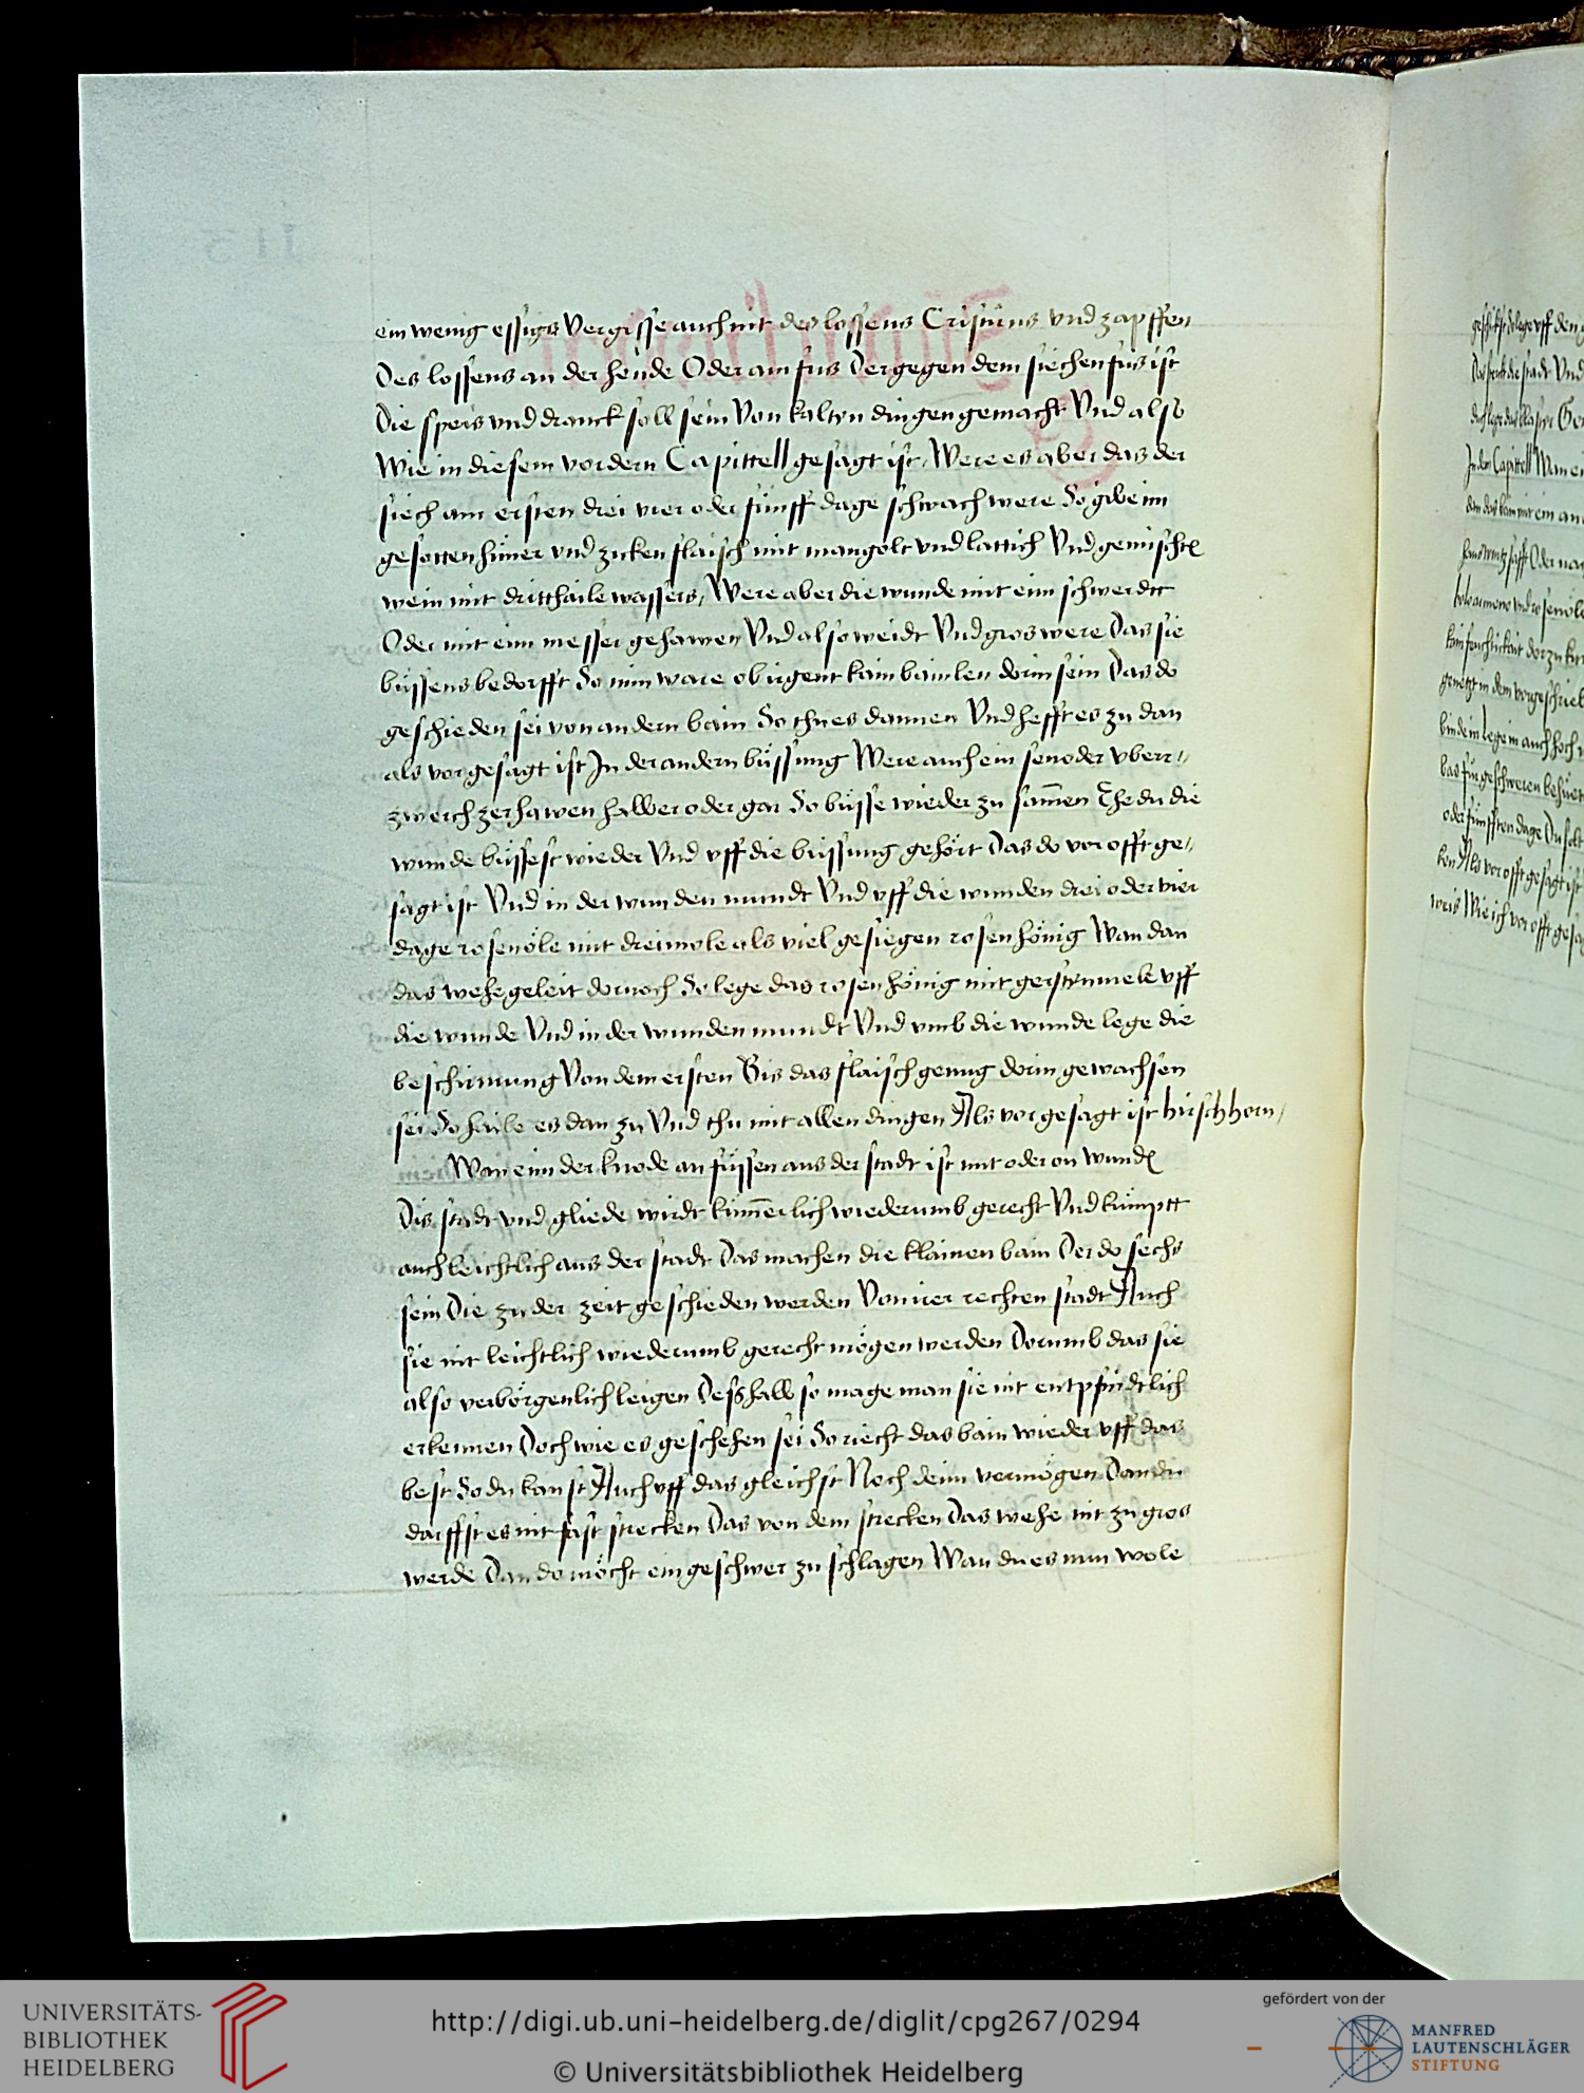 ein wenig essigs Vergisse auch nit des lossens Cristirns vnd zapffen
Des lossens an der hende Oder am fus Der gegen dem siechen fus ist
Die speis vnd dranck soll sein Von kalten dingen gemacht Vnd also
Wie in diesem vordern Capittell gesagt ist, Were es aber das der
siech am ersten drei vier oder fünff dage schwach were So gibe im
gesotten hüner vnd zicken flaisch mit mangolt vnd lattich Vnd gemischt
wein mit dritthaile wassers, Were aber die wunde mit eim schwerdtt
Oder mit eim messer gehawen Vnd also weidt Vnd gros were Das sie
büssens bedorfft So nim ware ob irgent kain bainlen dorin sein Das do
geschieden sei von andern bain So thu es dannen Vnd hefft es zu dan
als vor gesagt ist In der andern büssung Were auch ein senoder vberr,,
zwerch zerhawen halber oder gar So büsse wieder zu samen Ehe du die
wunde büssest wieder Vnd vff die büssung gehört Das do vor offt ge,,
sagt ist Vnd in der wunden mundt Vnd vff die wunden drei oder vier
dage rosenöle mit dreimole als viel gesiegen rosen hönig Wan dan
das wehe geleit dornoch So lege das rosen hönig mit gersten mele vff
die wunde Vnd in der wunden mundt Vnd vmb die wunde lege die
beschirmung Von dem ersten Bis das flaisch genug dorin gewachsen
sei So haile es dan zu Vnd thu mit allen dingen Als vor gesagt ist hirschhorn,
Wan eim der knode an füssen aus der stadt ist mit oder on wund
Dis stadt vnd gliede wirdt kümerlich wiederumb gerecht Vnd kümptt
auch leichtlich aus der stadt Das machen die klainen bain Der do sechs
sein Die zu der zeit geschieden werden Von irer rechten stadt Auch
sie nit leichtlich wiederumb gerecht mögen werden Dorumb das sie
also verbörgenlich leigen Desshalb so mage man sie nit entpfindtlich
erkennen Doch wie es geschehen sei So riecht das bain wieder vff das
best So du kanst Auch vff das gleichst Noch deim vermögen Dan du
darffst es nit fast strecken Das von dem strecken Das wehe nit zu gros
werde Dan do möcht ein geschwer zu schlagen Wan du es nun wole
UNIVERSITÄTS-
BIBLIOTHEK
HEIDELBERG
http://digi.ub.uni-heidelberg.de/diglit/cpg267/0294
© Universitätsbibliothek Heidelberg
gefördert von der
MANFRED
LAUTENSCHLÄGER
STIFTUNG